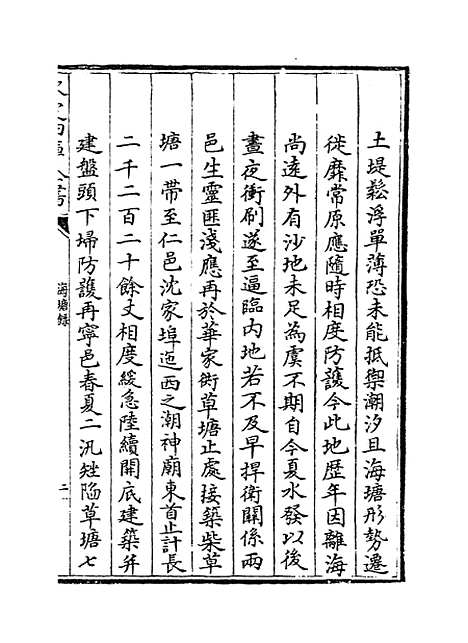 土堤鬆浮單薄恐未能抵禦潮汐且海塘形勢遷
徙靡常原應隨時相度防護今此地歴年因離海
尚逺外有沙地未足為虞不期自今夏水發以後
晝夜衝刷遂至逼臨内地若不及早捍衛關係兩
邑生靈匪淺應再於華家衖草塘止處接築柴草
塘一帶至仁邑沈家埠迤西之潮神廟東首止計長
二千二百二十餘丈相度緩急陸續開底建築并
建盤頭下埽防護再寧邑春夏二汎矬陷草塘七
海塘録